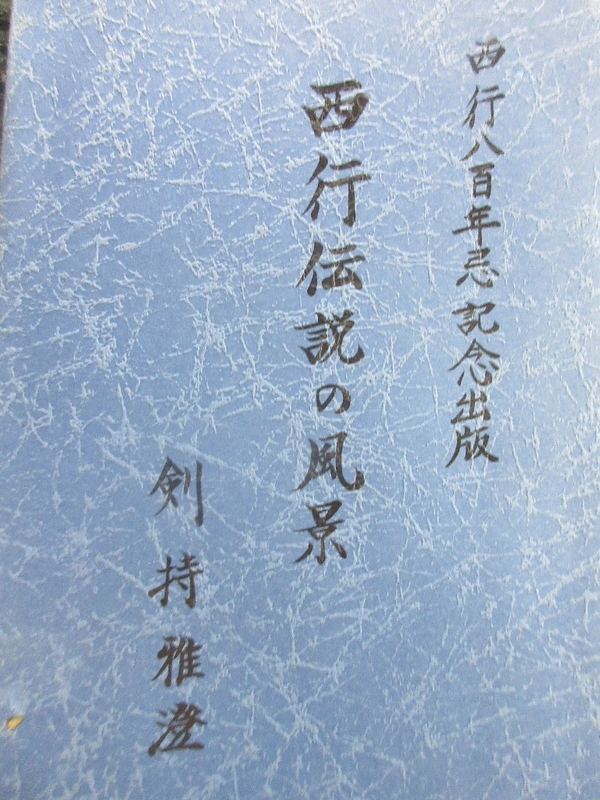 西行八百年忌記念出版
西行伝説の風景
剣持雅澄